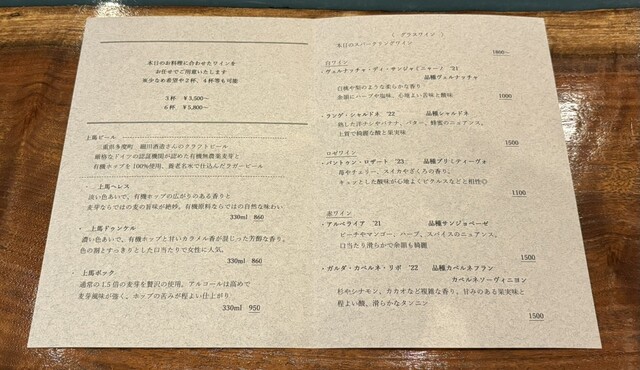 本日のお料理に合わせたワインを
お任せでご用意いたします
※少なめ希望や2杯、4杯等も可能
3杯 ￥3,500～
6杯 ￥5,800～
上馬ビール
三重県多度町 細川酒造さんのクラフトビール
厳格なドイツの認証機関が認めた有機無農薬麦芽と
有機ホップを100%使用、養老名水で仕込んだラガービール
・上馬ヘレス
淡い色あいで、有機ホップの広がりのある香りと
麦芽ならではの麦の旨味が絶妙。有機原料ならではの自然な味わい
330ml 860
・上馬ドゥンケル
濃い色あいで、有機ホップと甘いカラメル香が混じった芳醇な香り。
色の割とすっきりとした口当たりで女性に人気。
330ml 860
・上馬ボック
通常の1.5倍の麦芽を贅沢の使用。アルコールは高めで
麦芽風味が強く、ホップの苦みが程よい仕上がり
330ml 950
（ グラスワイン ）
本日のスパークリングワイン
1000～
白ワイン
・ヴェルナッチャ・ディ・サンジャミニャーノ '21 品種ヴェルナッチャ
白桃や梨のような柔らかな香り
余韻にハーブや塩味、心地よい苦味と酸味
1000
・ランゲ・シャルドネ '22 品種シャルドネ
熟した洋ナシやバナナ、バター、蜂蜜のニュアンス。
上質で綺麗な酸と果実味
1500
ロゼワイン
・パントゥン・ロザート '23 品種プリミティーヴォ
苺やチェリー、スイカやざくろの香り。
キュッとした酸味が心地よくピクルスなどと相性◎
1100
赤ワイン
・アルベライア '21 品種サンジョベーゼ
ピーチやマンゴー、ハーブ、スパイスのニュアンス。
口当たり滑らかで余韻も綺麗
1500
・ガルダ・カベルネ・リポ '22 品種カベルネフラン
カベルネソーヴィニヨン
杉やシナモン、カカオなど複雑な香り。甘みのある果実味と
程よい酸、滑らかなタンニン
1500